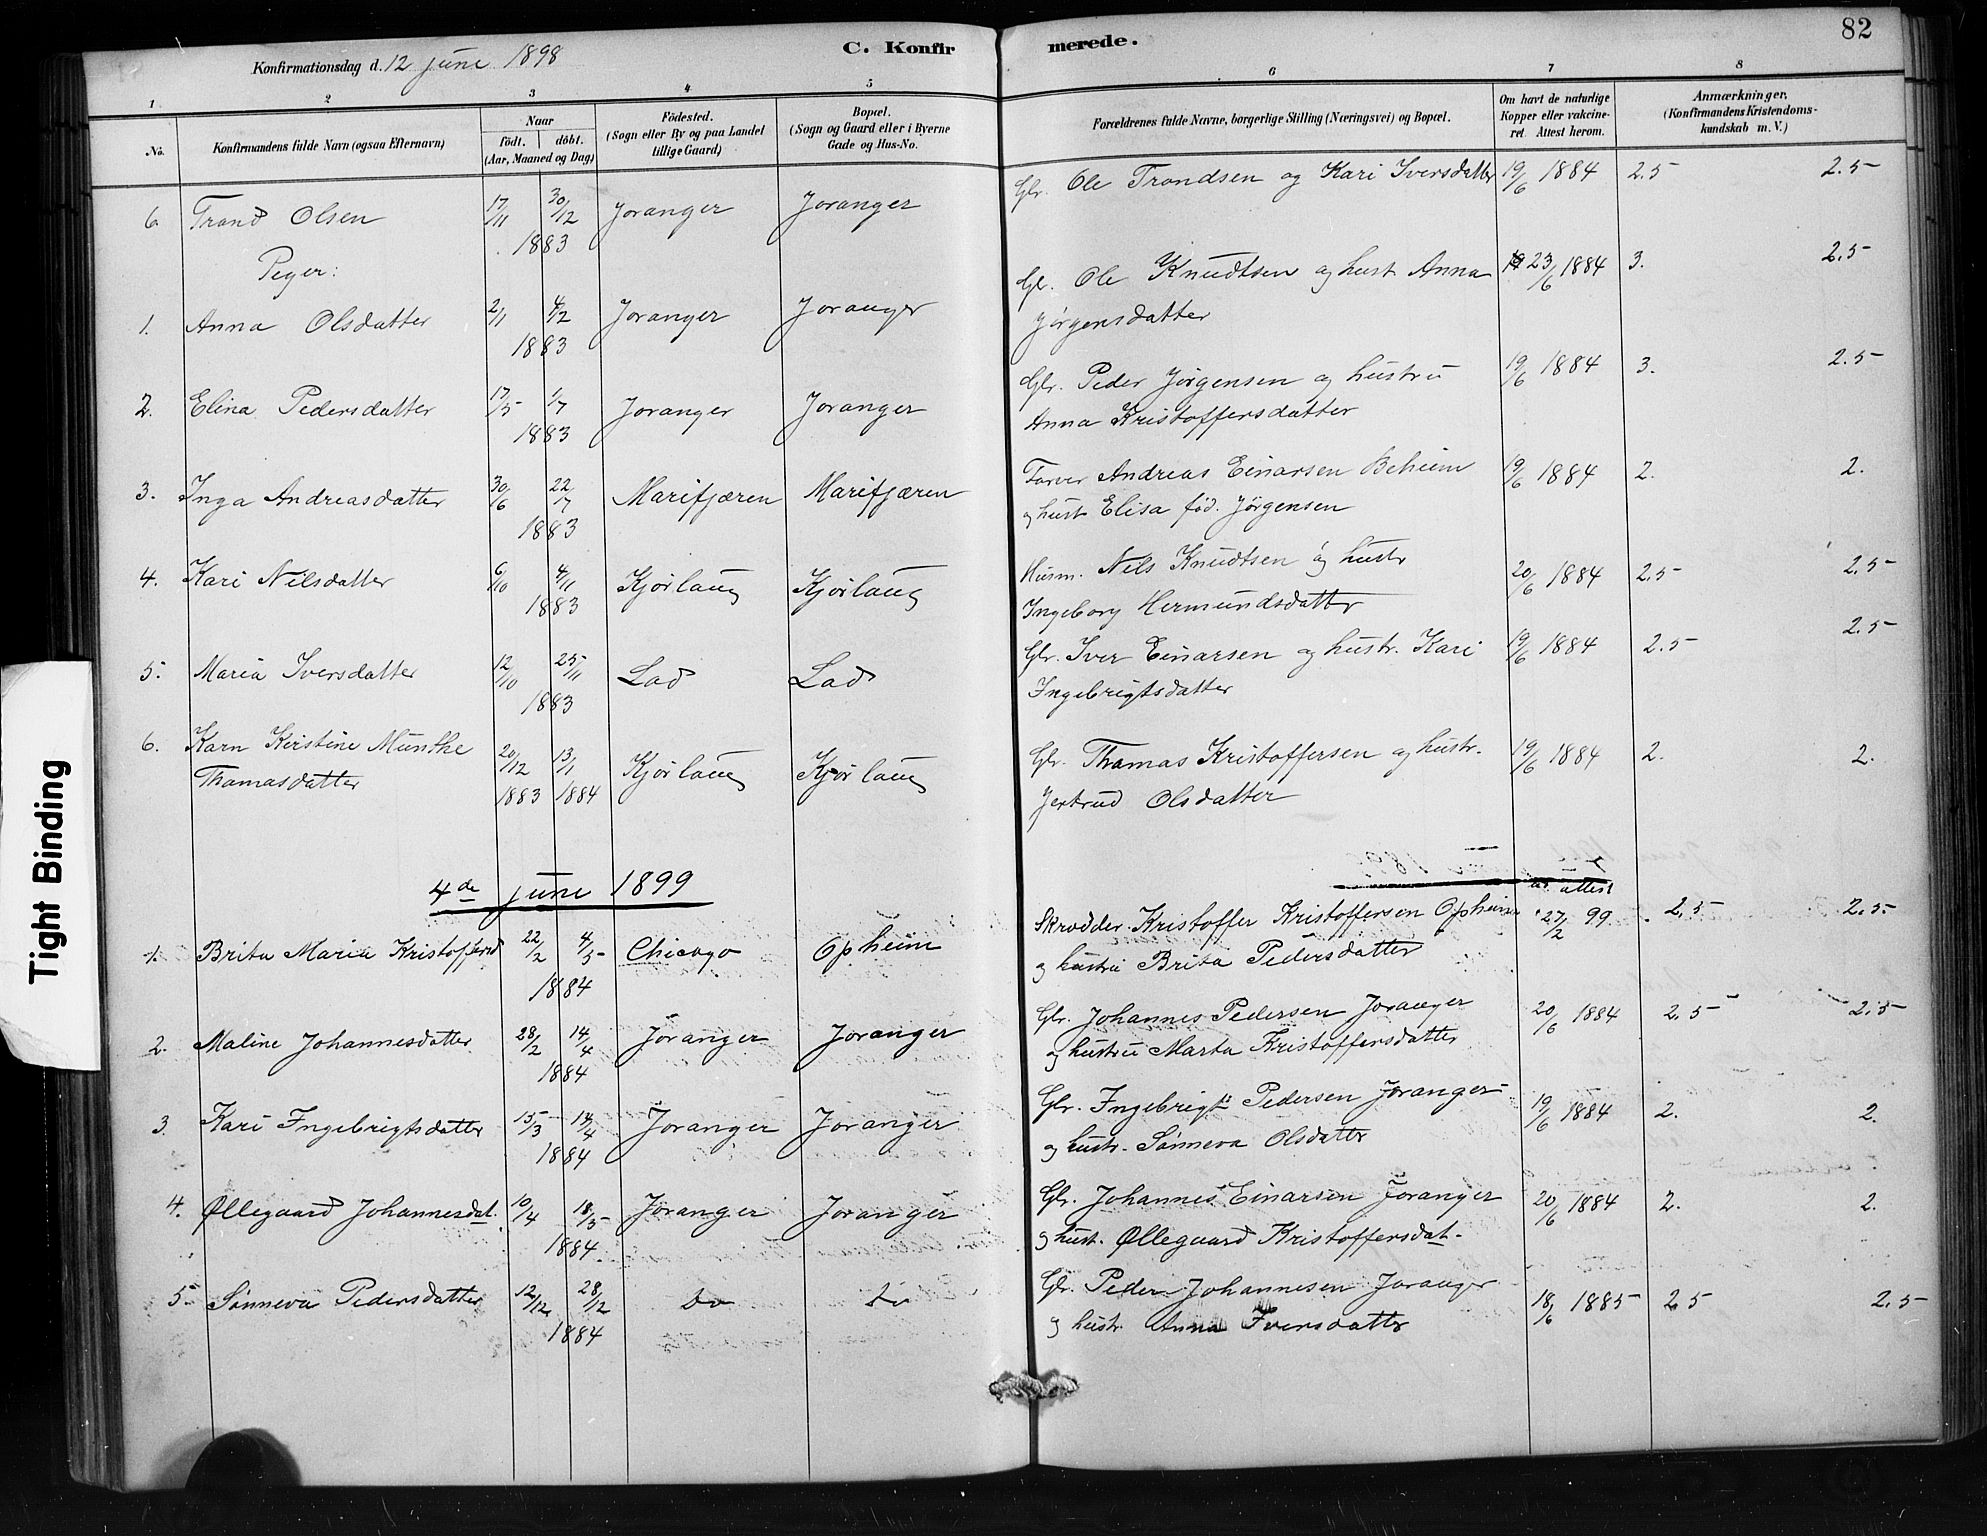 82
C. Konfirmerede.
Konfirmationsdag d. 12 june 1898
1 2 3 4 5 6 7 8
No.
Konfirmandens fulde Navn (ogsaa Efternavn)
Naar
født. døbt.
(Aar, Maaned og Dag)
Födested.
(Sogn eller By og paa Landet
tillige Gaard)
Bopæl.
(Sogn og Gaard eller i Byerne
Gade og Hus-No.
Forældrenes fulde Navne, borgerlige Stilling (Næringsvei) og Bopæl.
Om havt de naturlige
Kopper eller vakcine-
ret. Attest herom.
Anmærkninger,
(Konfirmandens Kristendoms-
kundskab m. V.)
6. Trond Olsen 17/11 30/12 1883 Joranger Joranger Gbr. Ole Trondsen og Kari Iversdatter 19/6 1884 2.5 2.5
Piger:
1. Anna Olsdatter 2/11 4/2 1883 Joranger Joranger Gbr. Ole Knudtsen og hust Anna 23/6 1884 3. 2.5
Jørgensdatter
2. Elina Pedersdatter 17/5 1/7 1883 Joranger Joranger Gbr. Peder Jørgensen og hustru 19/6 1884 3. 2.5
Anna Kristoffersdatter
3. Inga Andreasdatter 30/6 22/7 1883 Marifjæren Marifjæren Farver Andreas Einarsen Beheim 19/6 1884 2. 2.
og hust Elisa fød. Jørgensen
4. Kari Nilsdatter 6/10 4/11 1883 Kjørlaug Kjørlaug Husm. Nels Knudtsen og hustr 20/6 1884 2.5 2.5
Ingeborg Hermundsdatter
5. Maria Iversdatter 12/10 25/11 1883 Lad Lad Gbr. Iver Einarsen og hustr. Kari 19/6 1884 2.5 2.5
Ingebrigtsdatter
6. Karn Kirstine Munthe 20/12 1883 13/1 1884 Kjørlaug Kjørlaug Gbr. Thomas Kristoffersen og hustr. 19/6 1884 2. 2.
Thomasdatter Jertrud Olsdatter
4de june 1899
1. Brita Maria Kristoffersd 22/2 4/5 1884 Chicago Opheim Skrædder Kristoffer Kristoffersen Opheim attest 27/2 99 2.5 2.5
og hustru Brita Pedersdatter
2. Maline Johannesdatter 28/2 14/4 1884 Joranger Joranger Gbr. Johannes Pedersen Joranger 20/6 1884 2.5 2.5
og hustru Marta Kristoffersdatter
3. Kari Ingebrigtsdatter 15/3 14/4 1884 Joranger Joranger Gbr. Ingebrigt Pedersen Joranger 19/6 1884 2. 2.
og hustr. Sønneva Olsdatter
4. Øllegaard Johannesdat. 10/4 18/5 1884 Joranger Joranger Gbr. Johannes Einarsen Joranger 20/6 1884 2. 2.
og hust. Øllegaard Kristoffersdat.
5 Sønneva Pedersdatter 12/12 28/12 1884 Do Do Gbr. Peder Johannesen Joranger 18/6 1885 2.5 2.5
og hustr. Anna Iversdatter
Tight Binding